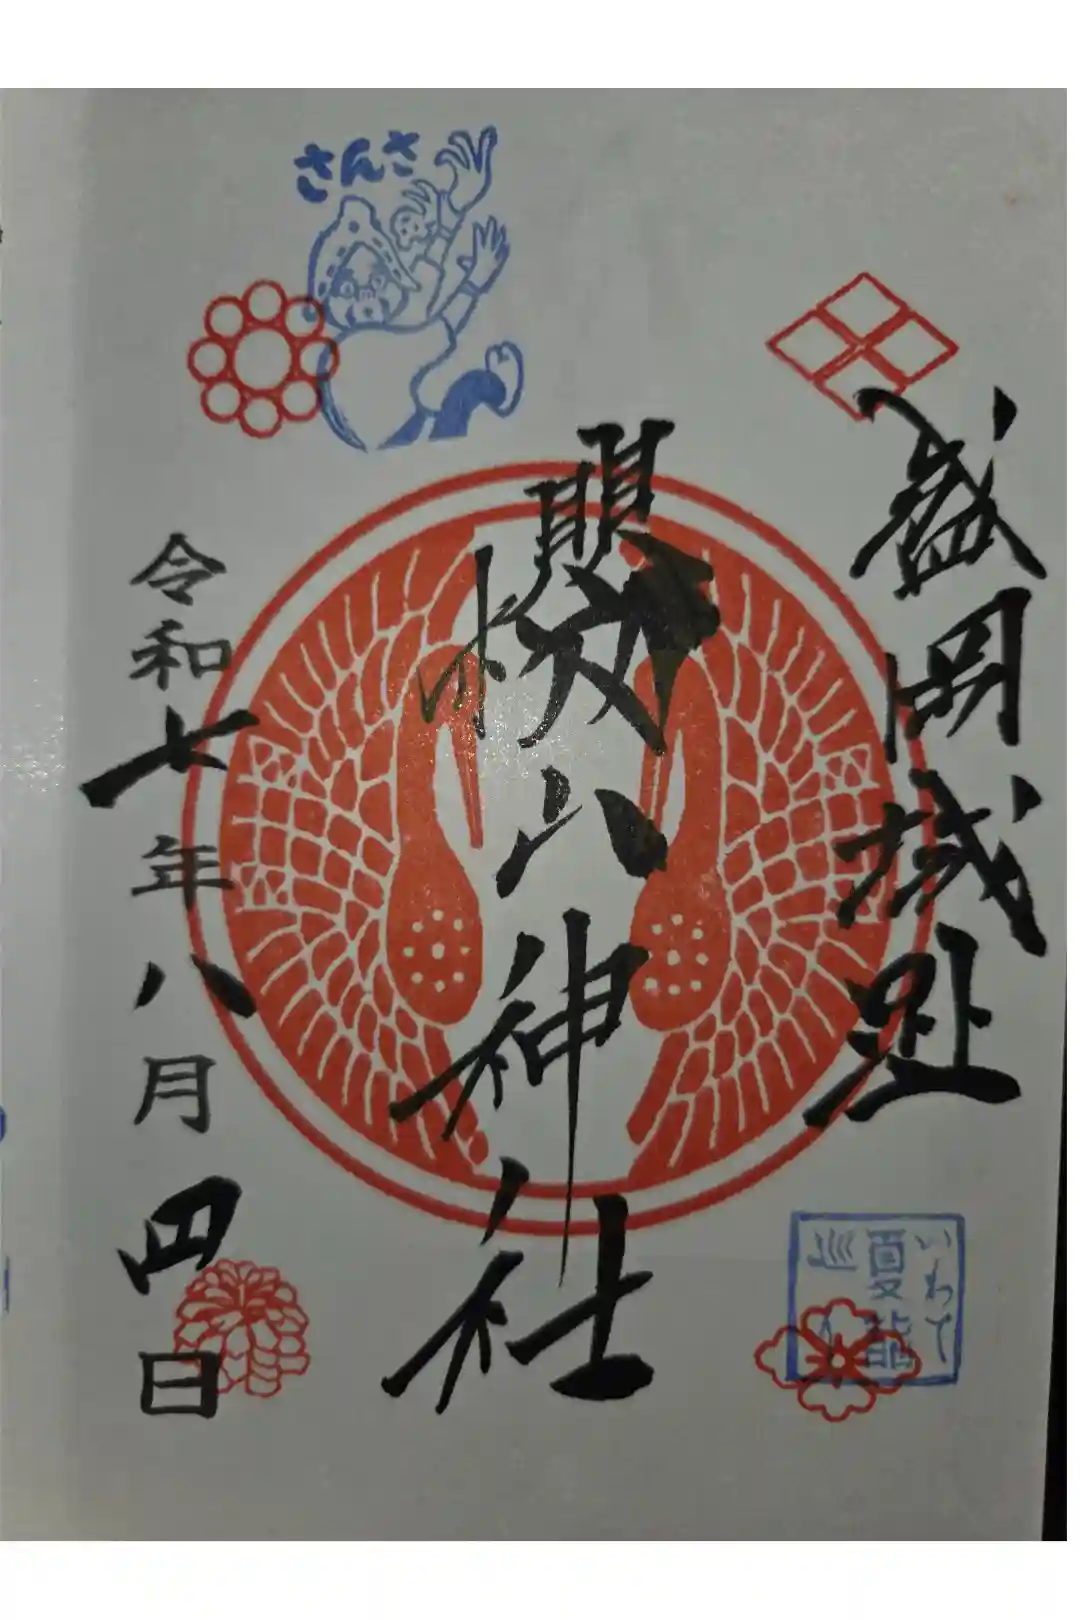 盛岡城址
櫻山神社
令和七年八月四日
さんさ
いわて
夏詣
巡り